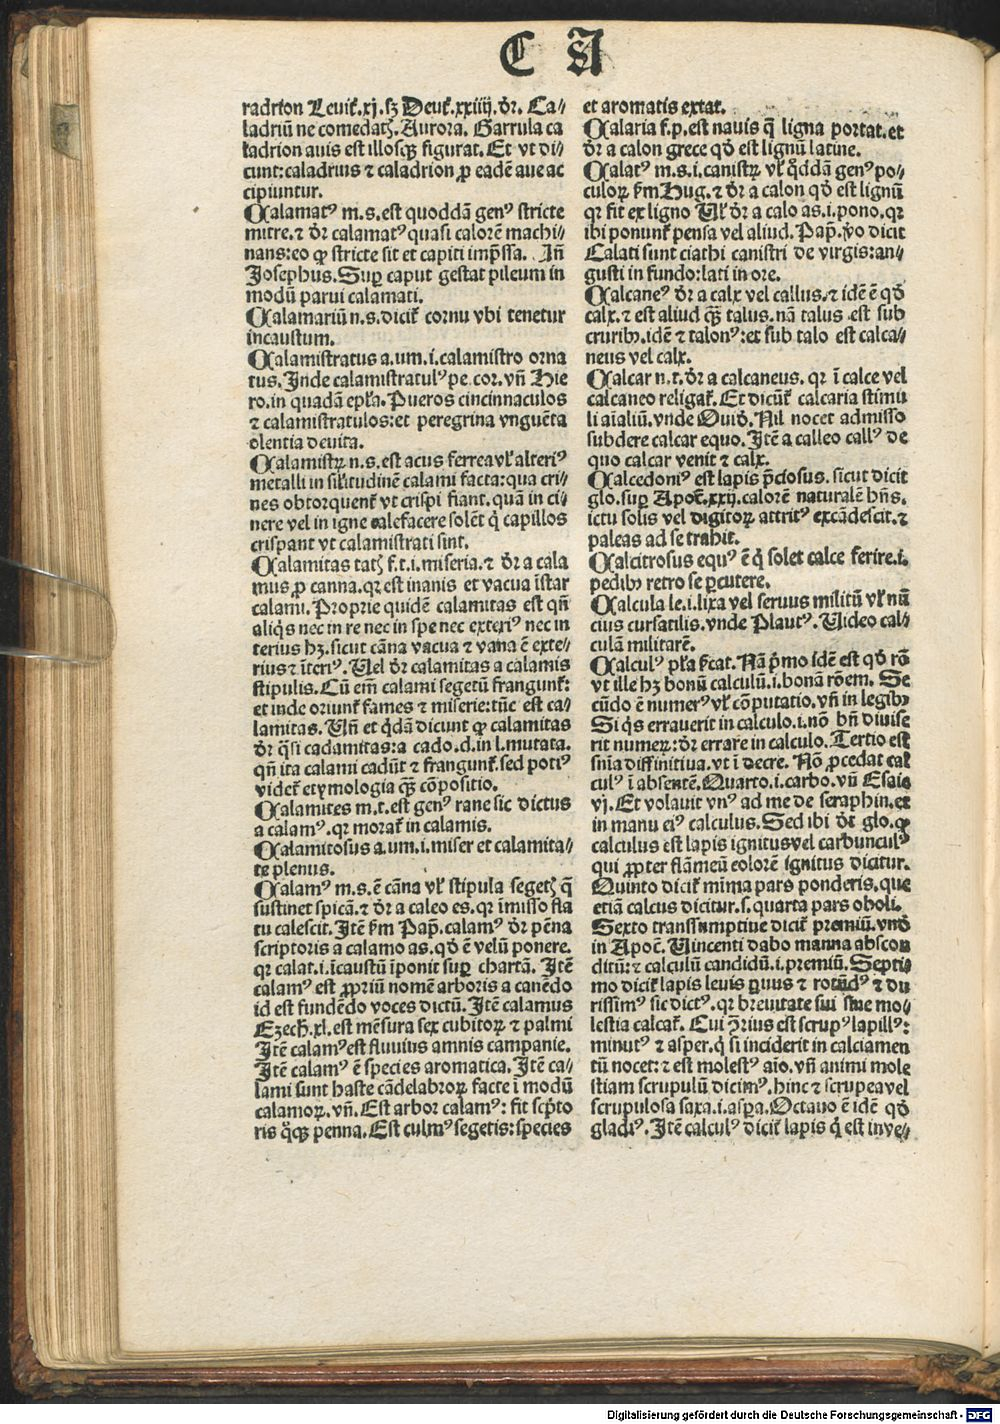 C A
radrion Leuit̃.xj.sꝫ Deut̃.xxiiij.d̕r. Ca⸗
ladriū ne comedatꝭ. Aurora. Garrula ca
ladrion auis est illosqꝫ figurat. Et vt di⸗
cunt: caladrius ⁊ caladrion ꝓ eadē aue ac
cipiuntur.
Calamatꝰ m.s. est quoddā genꝰ stricte
mitre. ⁊ d̕r calamatꝰ quasi calorē machi⸗
nans: eo ꝙ stricte sit et capiti imp̃ssa. Jñ
Josephus. Suꝑ caput gestat pileum in
modū parui calamati.
Calamariū n.s. dicit̃ cornu vbi tenetur
incaustum.
Calamistratus a.um.i. calamistro orna
tus. Jnde calamistratulꝰ pe.cor.vñ Hie
ro. in quadā ep̃la. Pueros cincinnaculos
⁊ calamistratulos: et peregrina vnguēta
olentia deuita.
Calamistrꝝ n.s. est acus ferrea vl̕ alteriꝰ
metalli in sil̕itudinē calami facta: qua cri⸗
nes obtorquent̃ vt crispi fiant. quā in ci⸗
nere vel in igne calefacere solēt q̇ capillos
crispant vt calamistrati sint.
Calamitas tatꝭ f.t.i. miseria. ⁊ d̕r a cala
mus ꝓ canna. qꝛ est inanis et vacua īstar
calami. Proprie quidē calamitas est qñ
aliq̇s nec in re nec in spe nec exteriꝰ nec in
terius hꝫ. sicut cāna vacua ⁊ vana ē exte⸗
rius ⁊ īteriꝰ. Uel d̕r calamitas a calamis
stipulis. Cū em̄ calami segetū frangunt̃:
et inde oriunt̃ fames ⁊ miserie: tūc est ca⸗
lamitas. Uñ et q̇dā dicunt ꝙ calamitas
d̕r q̃si cadamitas: a cado.d. in l. mutata.
qñ ita calami cadūt ⁊ frangunt̃. sed potiꝰ
videt̃ etymologia q̃ꝫ cōpositio.
Calamites m.t. est genꝰ rane sic dictus
a calamꝰ. qꝛ morat̃ in calamis.
Calamitosus a.um.i. miser et calamita⸗
te plenus.
Calamꝰ m.s. ē cāna vl̕ stipula segetꝭ q̃
sustinet spicā. ⁊ d̕r a caleo es. qꝛ īmisso fla
tu calescit. Jtē fm̄ Pap̃. calamꝰ d̕r pēna
scriptoris a calamo as. qd̕ ē velū ponere.
qꝛ calat.i. īcaustū īponit suꝑ chartā. Jtē
calamꝰ est ꝓpriū nomē arboris a canēdo
id est fundēdo voces dictū. Jtē calamus
Ezech̃.xl. est mēsura sex cubitoꝝ ⁊ palmi
Jtē calamꝰ est fluuius amnis campanie.
Jtē calamꝰ ē species aromatica. Jtē ca⸗
lami sunt haste cādelabroꝝ facte ī modū
calamoꝝ. vñ. Est arbor calamꝰ: fit sc̃pto
ris q̊qꝫ penna. Est culmꝰ segetis: species
et aromatis extat.
Calaria f.p. est nauis q̃ ligna portat. et
d̕r a calon grece qd̕ est lignū latine.
Calatꝰ m.s.i. canistrꝝ vl̕ q̊ddā genꝰ po⸗
culoꝝ fm̄ Hug. ⁊ d̕r a calon qd̕ est lignū
qꝛ fit ex ligno Ul̕ d̕r a calo as.i. pono. qꝛ
ibi ponunt̃ pensa vel aliud. Pap̃. v̊o dicit
Calati sunt ciathi canistri de virgis: an⸗
gusti in fundo: lati in ore.
Calcaneꝰ d̕r a calx vel callus. ⁊ idē ē qd̕
calx. ⁊ est aliud q̃ꝫ talus. nā talus est sub
cruribꝫ. idē ⁊ talonꝰ: et sub talo est calca⸗
neus vel calx.
Calcar n.t. d̕r a calcaneus. qꝛ ī calce vel
calcaneo religat̃. Et dicūt̃ calcaria stimu
li aīaliū. vnde Ouid̕. Nil nocet admisso
subdere calcar equo. Jtē a calleo callꝰ de
quo calcar venit ⁊ calx.
Calcedoniꝰ est lapis p̃ciosus. sicut dicit
glo. suꝑ Apoc̃.xxij. calorē naturalē hñs.
ictu solis vel digitoꝝ attritꝰ excādescit. ⁊
paleas ad se trahit.
Calcitrosus equꝰ ē q̇ solet calce ferire.i.
pedibꝫ retro se ꝑcutere.
Calcula le.i. lixa vel seruus militū vl̕ nū
cius cursatilis. vnde Plautꝰ. Uideo cal⸗
culā militarē.
Calculꝰ pl̕a s̕cat. Nā p̊mo idē est qd̕ rō
vt ille hꝫ bonū calculū.i. bonā rōem. Se
cūdo ē numerꝰ vl̕ cōputatio. vñ in legibꝫ
Si q̇s errauerit in calculo.i. nō bñ diuise
rit numeꝝ: d̕r errare in calculo. Tertio est
sn̄ia diffinitiua. vt ī decre. Nō ꝓcedat cal
culꝰ ī absentē. Quarto.i. carbo. vñ Esaie
vj. Et volauit vnꝰ ad me de seraphin. et
in manu eiꝰ calculus. Sed ibi d̕t glo. ꝙ
calculus est lapis ignitus vel carbunculꝰ
qui ꝓpter flāmeū colorē ignitus dicitur.
Quinto dicit̃ mīma pars ponderis. que
etiā calcus dicitur.s. quarta pars oboli.
Sexto transsumptiue dicit̃ premiū. vnd̕
in Apoc̃. Uincenti dabo manna abscon
ditū: ⁊ calculū candidū.i. premiū. Septi⸗
mo dicit̃ lapis leuis ꝑuus ⁊ rotūdꝰ ⁊ du
rissimꝰ sic dictꝰ. qꝛ breuitate sui sine mo⸗
lestia calcat̃. Cui ꝯ̃rius est scrupꝰ lapillꝰ:
minutꝰ ⁊ asper. q̇ si inciderit in calciamen
tū nocet: ⁊ est molestꝰ aīo. vñ animi mole
stiam scrupulū dicimꝰ. hinc ⁊ scrupea vel
scrupulosa saxa.i. aspa. Octauo ē idē qd̕
gladiꝰ. Jtē calculꝰ dicit̃ lapis q̇ est inue⸗
Digitalisierung gefördert durch die Deutsche Forschungsgemeinschaft - DFG